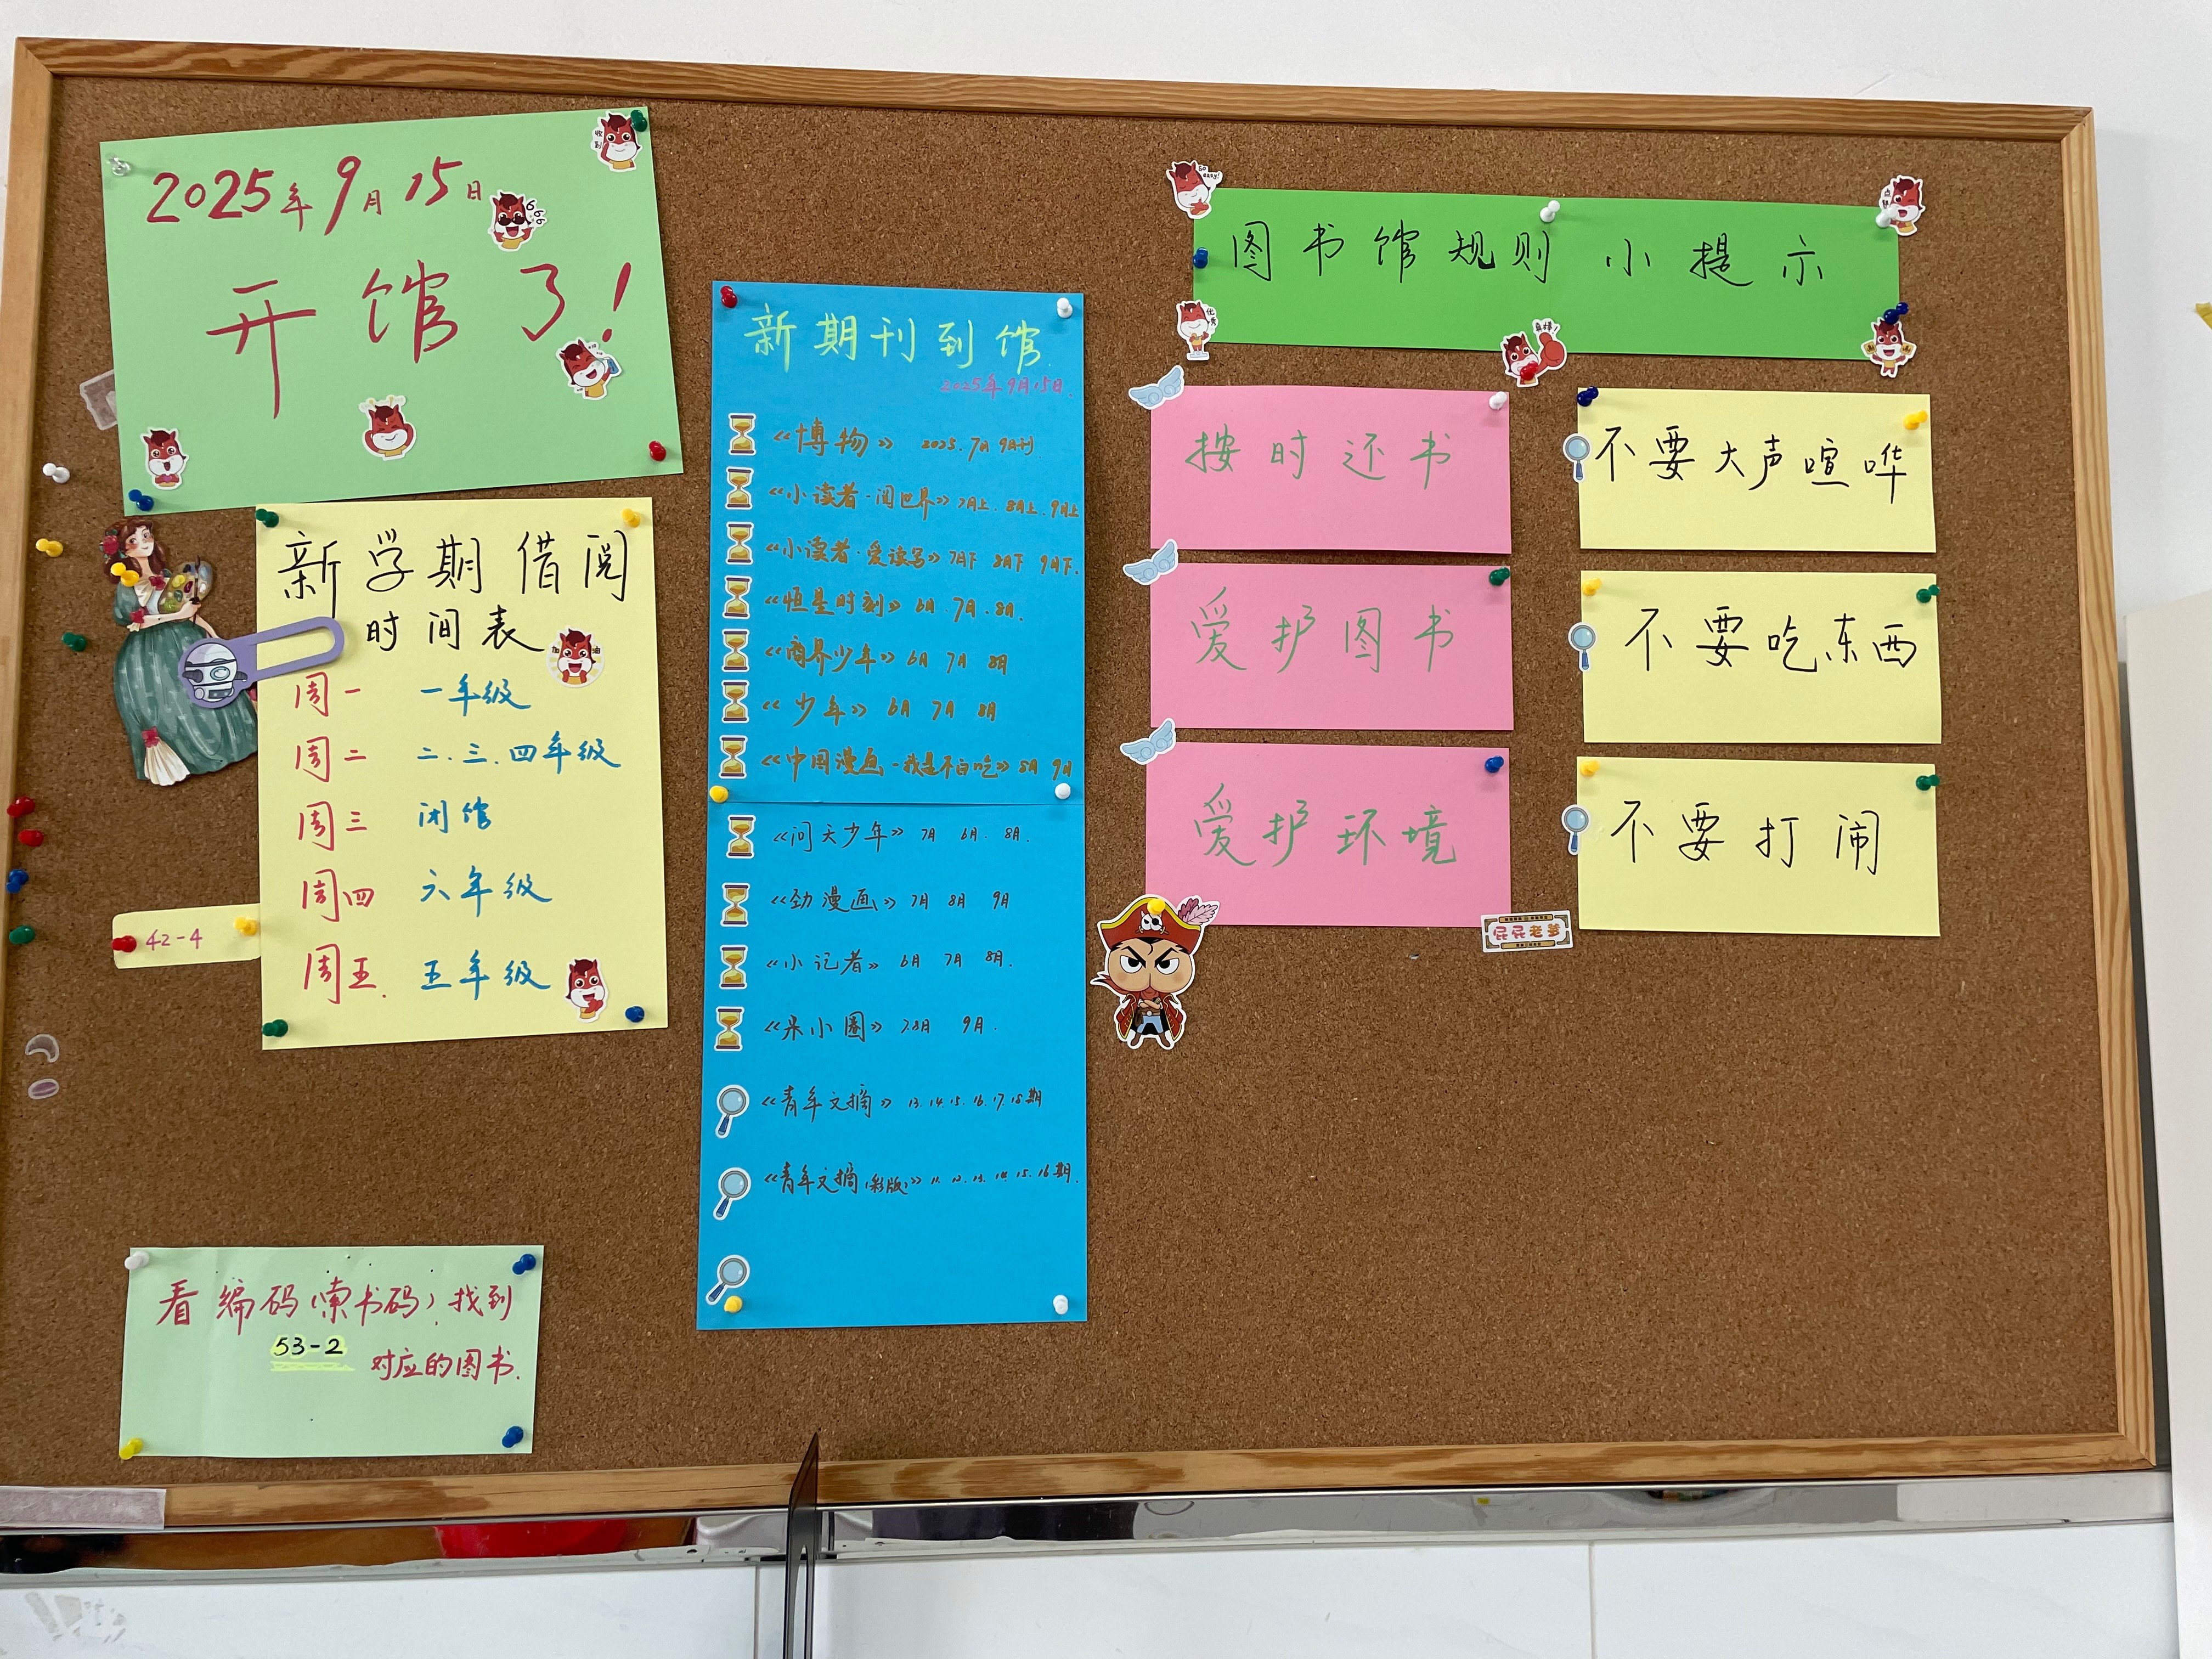 2025年9月15日
开馆了!
新学期借阅
时间表
周一 一年级
周二 二.三.四年级
周三 闭馆
周四 六年级
周五. 五年级
42-4
看编码(索书码),找到
53-2
对应的图书.
新期刊到馆
2025年9月15日.
《博物》 2025.7月 9月刊
《小读者·阅世界》7月上.8月上.9月上
《小读者·爱读写》7月下 8月下 9月下.
《恒星时刻》6月.7月.8月.
《商界少年》6月 7月 8月
《少年》6月 7月 8月
《中国漫画-我是不白吃》8月 9月
《问天少年》7月 6月.8月.
《劲漫画》7月 8月 9月
《小记者》6月 7月 8月.
《呆小圈》7.8月 9月.
《青年文摘》13.14.15.16.17.18期
《青年文摘(彩版)》11.12.13.14.15.16期.
图书馆规则小提示
按时还书
爱护图书
爱护环境
不要大声喧哗
不要吃东西
不要打闹
屁屁老爹
收到
666
加油
优秀
真棒!